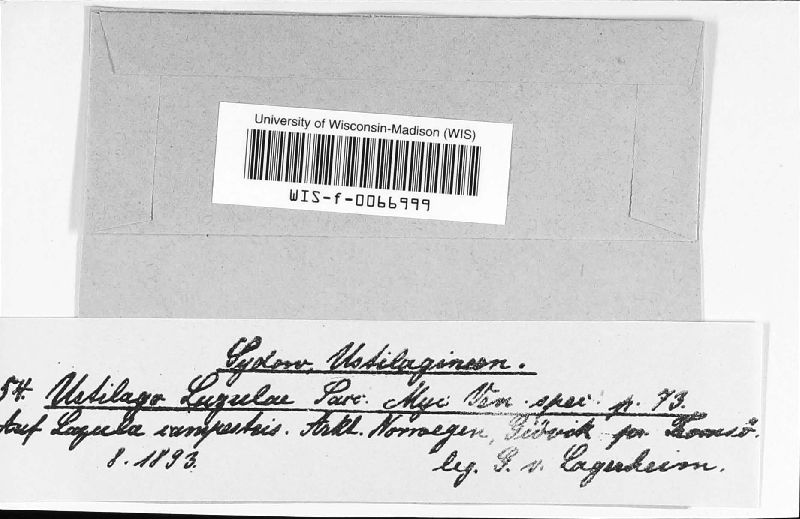 University of Wisconsin-Madison (WIS)
WIS-f-0066999
Sydow, Ustilagineen.
54. Ustilago Luzulae Sacc. Myc Ven. spec. p. 73.
Auf Luzula campestris. Arkt. Norwegen, Tisvik pr. Tromsö.
8. 1893. leg. G. v. Lagerheim.